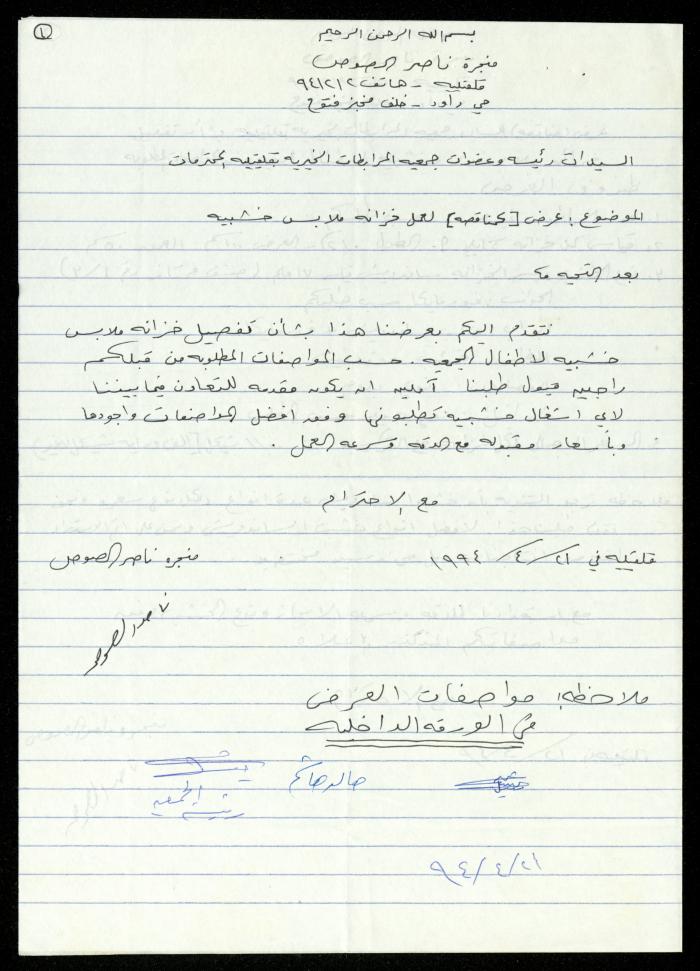 ١
بسم الله الرحمن الرحيم
منجرة ناصر الصوص
قلقيليه - هاتف ٩٤١٢١٢
حي داود - خلف مخبز فتوح
السيدات رئيسه وعضوات جمعيه المرابطات الخيريه بقلقيليه المحترمات
الموضوع : عرض [كمناقصه] لعمل خزانه ملابس خشبيه
بعد التحيه ،،
نتقدم اليكم بعرضنا هذا بشأن تفصيل خزانه ملابس
خشبيه لاطفال الجمعيه . حسب المواصفات المطلوبه من قبلكم
راجين قبول طلبنا آملين ان يكون مقدمه للتعاون فيما بيننا
لاي اشغال خشبيه تطلبونها وفق افضل المواصفات واجودها
وبأسعار مقبوله مع الدقه وسرعه العمل .
مع الاحترام
قلقيليه في ٢١ / ٤ / ١٩٩٤ منجره ناصر الصوص
ناصر الصوص
ملاحظه : مواصفات العرض
في الورقه الداخليه
خالد هاشم
رئيسة الجمعيه
٩٤/٤/٢١